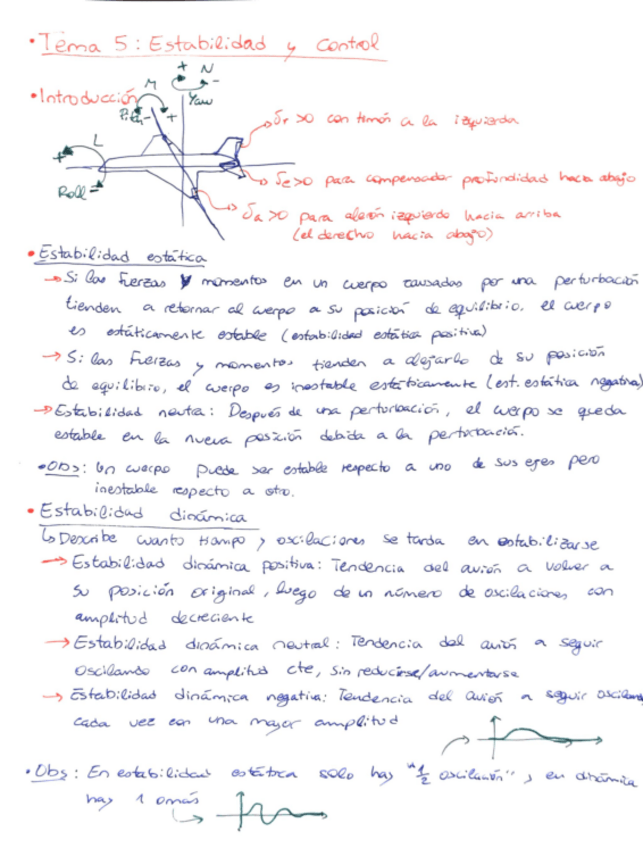 • Tema 5: Estabilidad y Control
• Introducción
+ N
-
M
Yaw
Pitch - +
L
+
Roll -
δr >0 con timón a la izquierda
δe >0 para compensador profundidad hacia abajo
δa >0 para alerón izquierdo hacia arriba
(el derecho hacia abajo)
• Estabilidad estática
→ Si las fuerzas y momentos en un cuerpo causadas por una perturbación
tienden a retornar al cuerpo a su posición de equilibrio, el cuerpo
es estáticamente estable (estabilidad estática positiva)
→ Si las fuerzas y momentos tienden a alejarlo de su posición
de equilibrio, el cuerpo es inestable estáticamente (est. estática negativa)
→ Estabilidad neutra: Después de una perturbación, el cuerpo se queda
estable en la nueva posición debida a la perturbación.
• Obs: Un cuerpo puede ser estable respecto a uno de sus ejes pero
inestable respecto a otro.
• Estabilidad dinámica
↳ Describe cuanto tiempo y oscilaciones se tarda en estabilizarse
→ Estabilidad dinámica positiva: Tendencia del avión a volver a
su posición original, luego de un número de oscilaciones con
amplitud decreciente
→ Estabilidad dinámica neutral: Tendencia del avión a seguir
oscilando con amplitud cte, sin reducirse/aumentarse
→ Estabilidad dinámica negativa: Tendencia del avión a seguir oscilando
cada vez con una mayor amplitud
• Obs: En estabilidad estática solo hay "1/2 oscilación", en dinámica
hay 1 o más